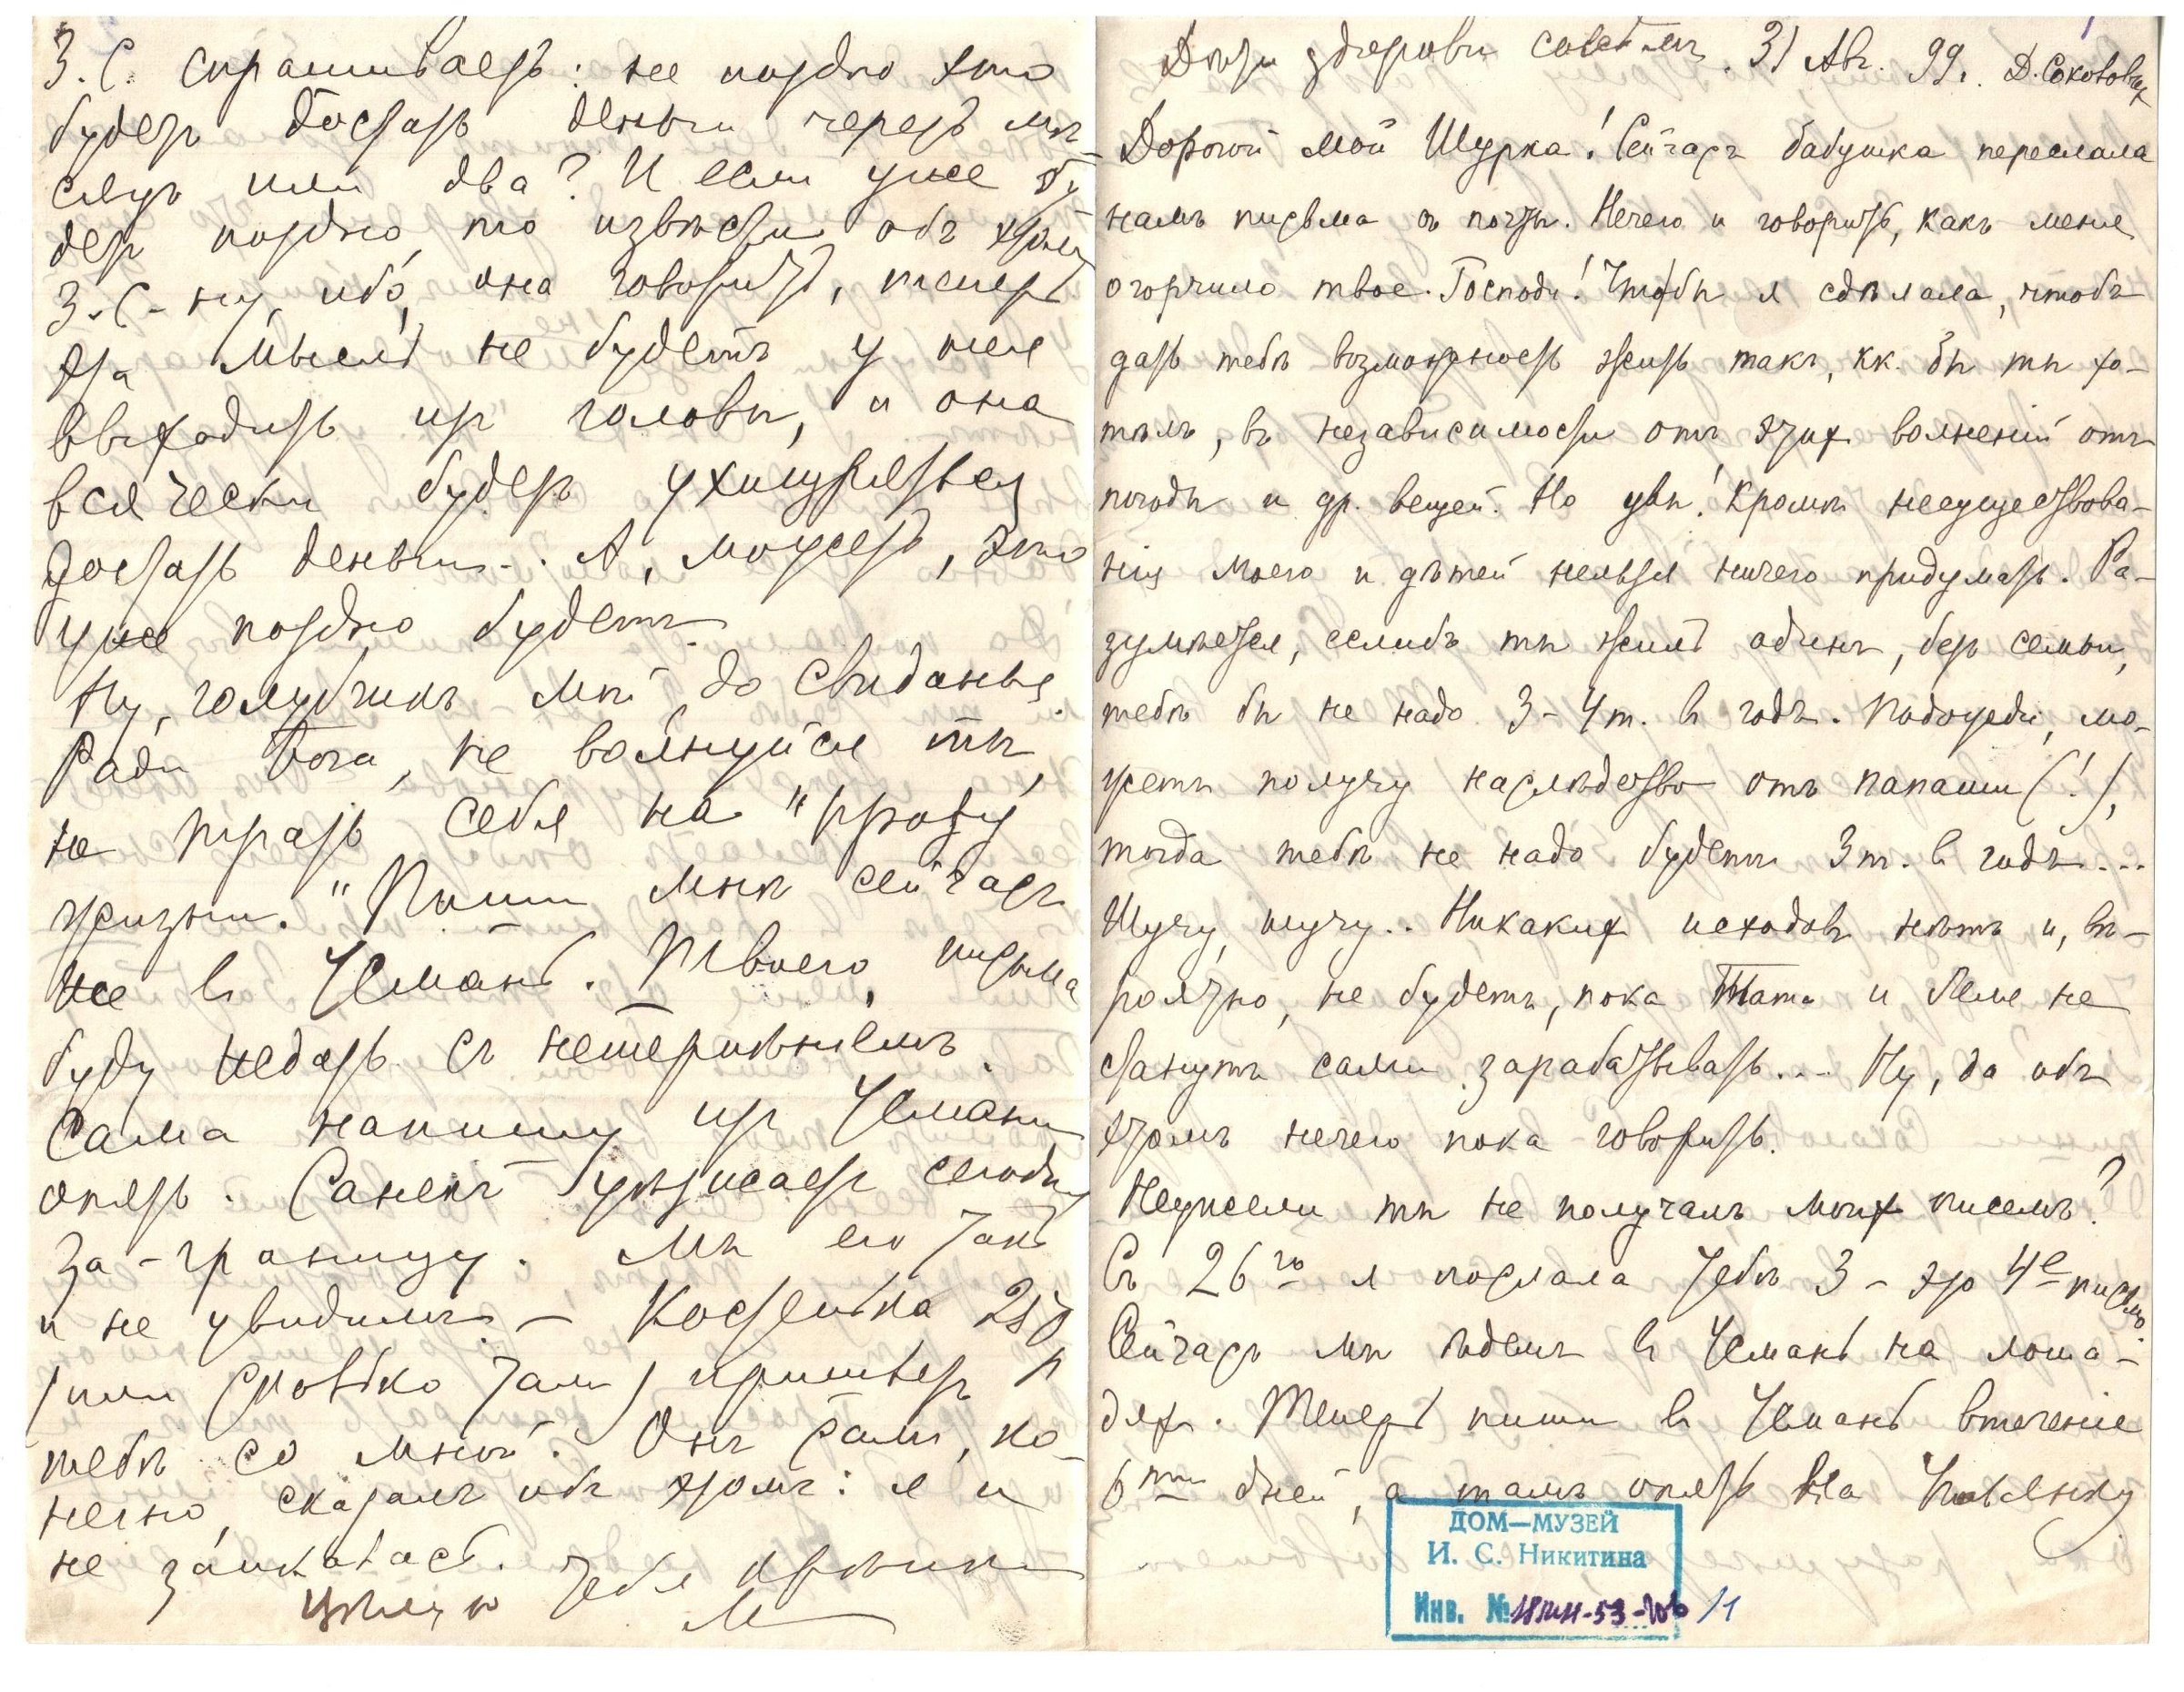 Дѣти здоровы совсѣмъ. 31 Авг. 99. Д. Соколовых
Дорогой мой Шурка! Сейчасъ бабушка переслала
намъ письма съ почты. Нечего и говорить, какъ меня
огорчило твое. Господи! Чтобы я сдѣлала, чтобъ
дать тебѣ возможность жить такъ, кк. бы ты хо-
тѣлъ, въ независимости отъ этих волненій отъ
погоды и др. вещей. Но увы! Кромѣ несуществова-
нія моего и дѣтей нельзя ничего придумать. Ра-
зумѣется, еслибъ ты жилъ одинъ, безъ семьи,
тебѣ бы не надо 3-4 т. въ годъ. Подожди, мо-
жетъ получу наслѣдство отъ папаши (!),
тогда тебѣ не надо будетъ 3 т. въ годъ...
Шучу, шучу.. Никаких исходовъ нѣтъ и, вѣ-
роятно, не будетъ, пока Тата и Леля не
станутъ сами зарабатывать... Ну, да объ
этомъ нечего пока говорить.
Неужели ты не получалъ моих писемъ?
Съ 26го я послала тебѣ 3 - это 4е письмо.
Сейчасъ мы ѣдемъ въ Усмань на лоша-
дях. Теперь пиши въ Усмань втеченіе
6ти дней, а тамъ опять на
ДОМ—МУЗЕЙ
И. С. Никитина
Инв. № /1
З. С. спрашиваетъ: не поздно это
будетъ достать деньги черезъ мѣ-
сяцъ или два? И если уже бу-
детъ поздно, то извѣсти объ этом
З. С-ну, ибо, она говоритъ, теперь
эта мысль не будетъ у нея
выходить изъ головы, и она
всячески будетъ ухищряться
достать деньги.. А, можетъ, это
уже поздно будетъ.
Ну, голубчикъ мой, до свиданья.
Ради Бога, не волнуйся ты,
не трать себя на "прозу
жизни." Пиши мнѣ сейчасъ
же въ Усмань. Твоего письма
буду ждать съ нетерпѣніемъ.
Сама напишу изъ Усмани
опять. Санекъ уѣзжаетъ сегодня
за-границу. Мы его такъ
и не увидимъ. - Костенька 250
(или сколько там) пришлетъ
тебѣ со мной. Онъ самъ, ко-
нечно, сказалъ объ этомъ: я и
не заикалась. Тебя крѣпко
цѣлую М